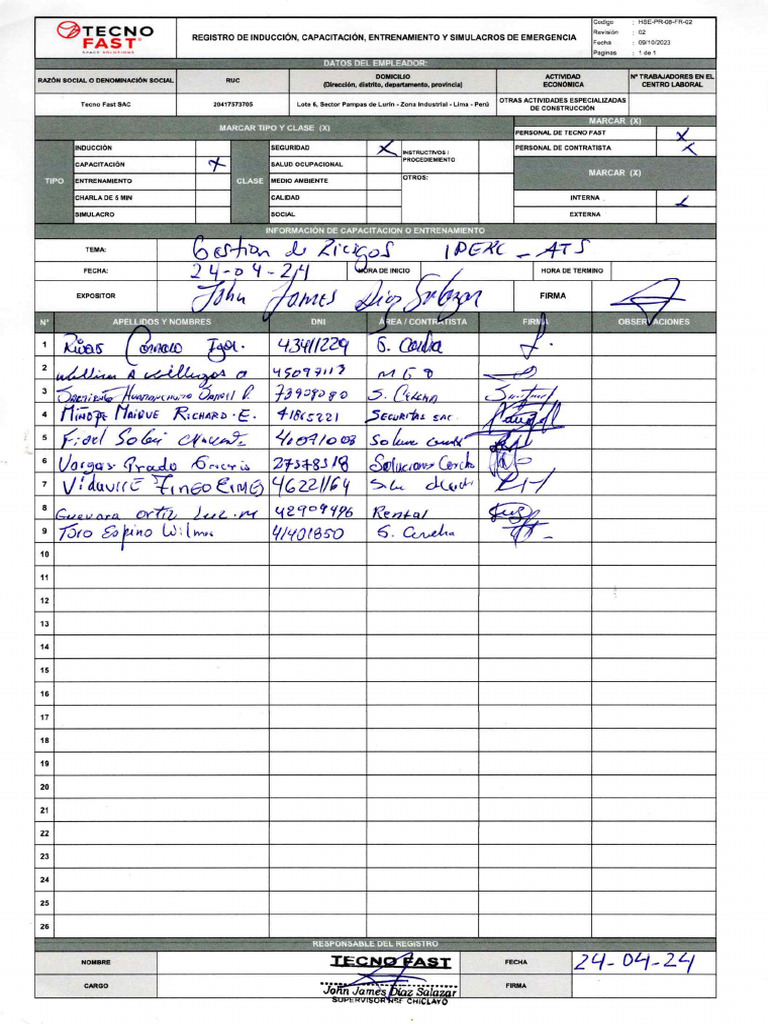 TECNO
FAST
SPACE SOLUTIONS
REGISTRO DE INDUCCIÓN, CAPACITACIÓN, ENTRENAMIENTO Y SIMULACROS DE EMERGENCIA
Codigo : HSE-PR-08-FR-02
Revisión : 02
Fecha : 09/10/2023
Paginas : 1 de 1
DATOS DEL EMPLEADOR:
RAZÓN SOCIAL O DENOMINACIÓN SOCIAL RUC DOMICILIO (Dirección, distrito, departamento, provincia) ACTIVIDAD ECONÓMICA Nº TRABAJADORES EN EL CENTRO LABORAL
Tecno Fast SAC 20417573705 Lote 6, Sector Pampas de Lurín - Zona Industrial - Lima - Perú OTRAS ACTIVIDADES ESPECIALIZADAS DE CONSTRUCCIÓN
MARCAR TIPO Y CLASE (X) MARCAR (X)
PERSONAL DE TECNO FAST X
TIPO INDUCCIÓN CLASE SEGURIDAD X INSTRUCTIVOS / PROCEDIMIENTO PERSONAL DE CONTRATISTA X
CAPACITACIÓN X SALUD OCUPACIONAL
MARCAR (X)
ENTRENAMIENTO MEDIO AMBIENTE OTROS:
CHARLA DE 5 MIN CALIDAD INTERNA
SIMULACRO SOCIAL EXTERNA
INFORMACIÓN DE CAPACITACION O ENTRENAMIENTO
TEMA: Gestion de Riesgos IPERC - ATS
FECHA: 24-04-24 HORA DE INICIO HORA DE TERMINO
EXPOSITOR John James Diaz Salazar FIRMA
Nº APELLIDOS Y NOMBRES DNI ÁREA / CONTRATISTA FIRMA OBSERVACIONES
1 Rivas Igor. 43411229 S.
2 45097113
3 Daniel 73909080 S.
4 Miñope Maique Richard.E. 41865221 Securitas sac.
5 Fidel 40091003
6 Vargas Prado 27378318 Soluciones
7 46221164
8 Guevara Ortiz Luz.M 42909496 Rental
9 Toro Espino Wilmer 41401850 S.
10
11
12
13
14
15
16
17
18
19
20
21
22
23
24
25
26
RESPONSABLE DEL REGISTRO
NOMBRE TECNO FAST FECHA 24-04-24
CARGO John James Díaz Salazar FIRMA
SUPERVISOR HSE CHICLAYO